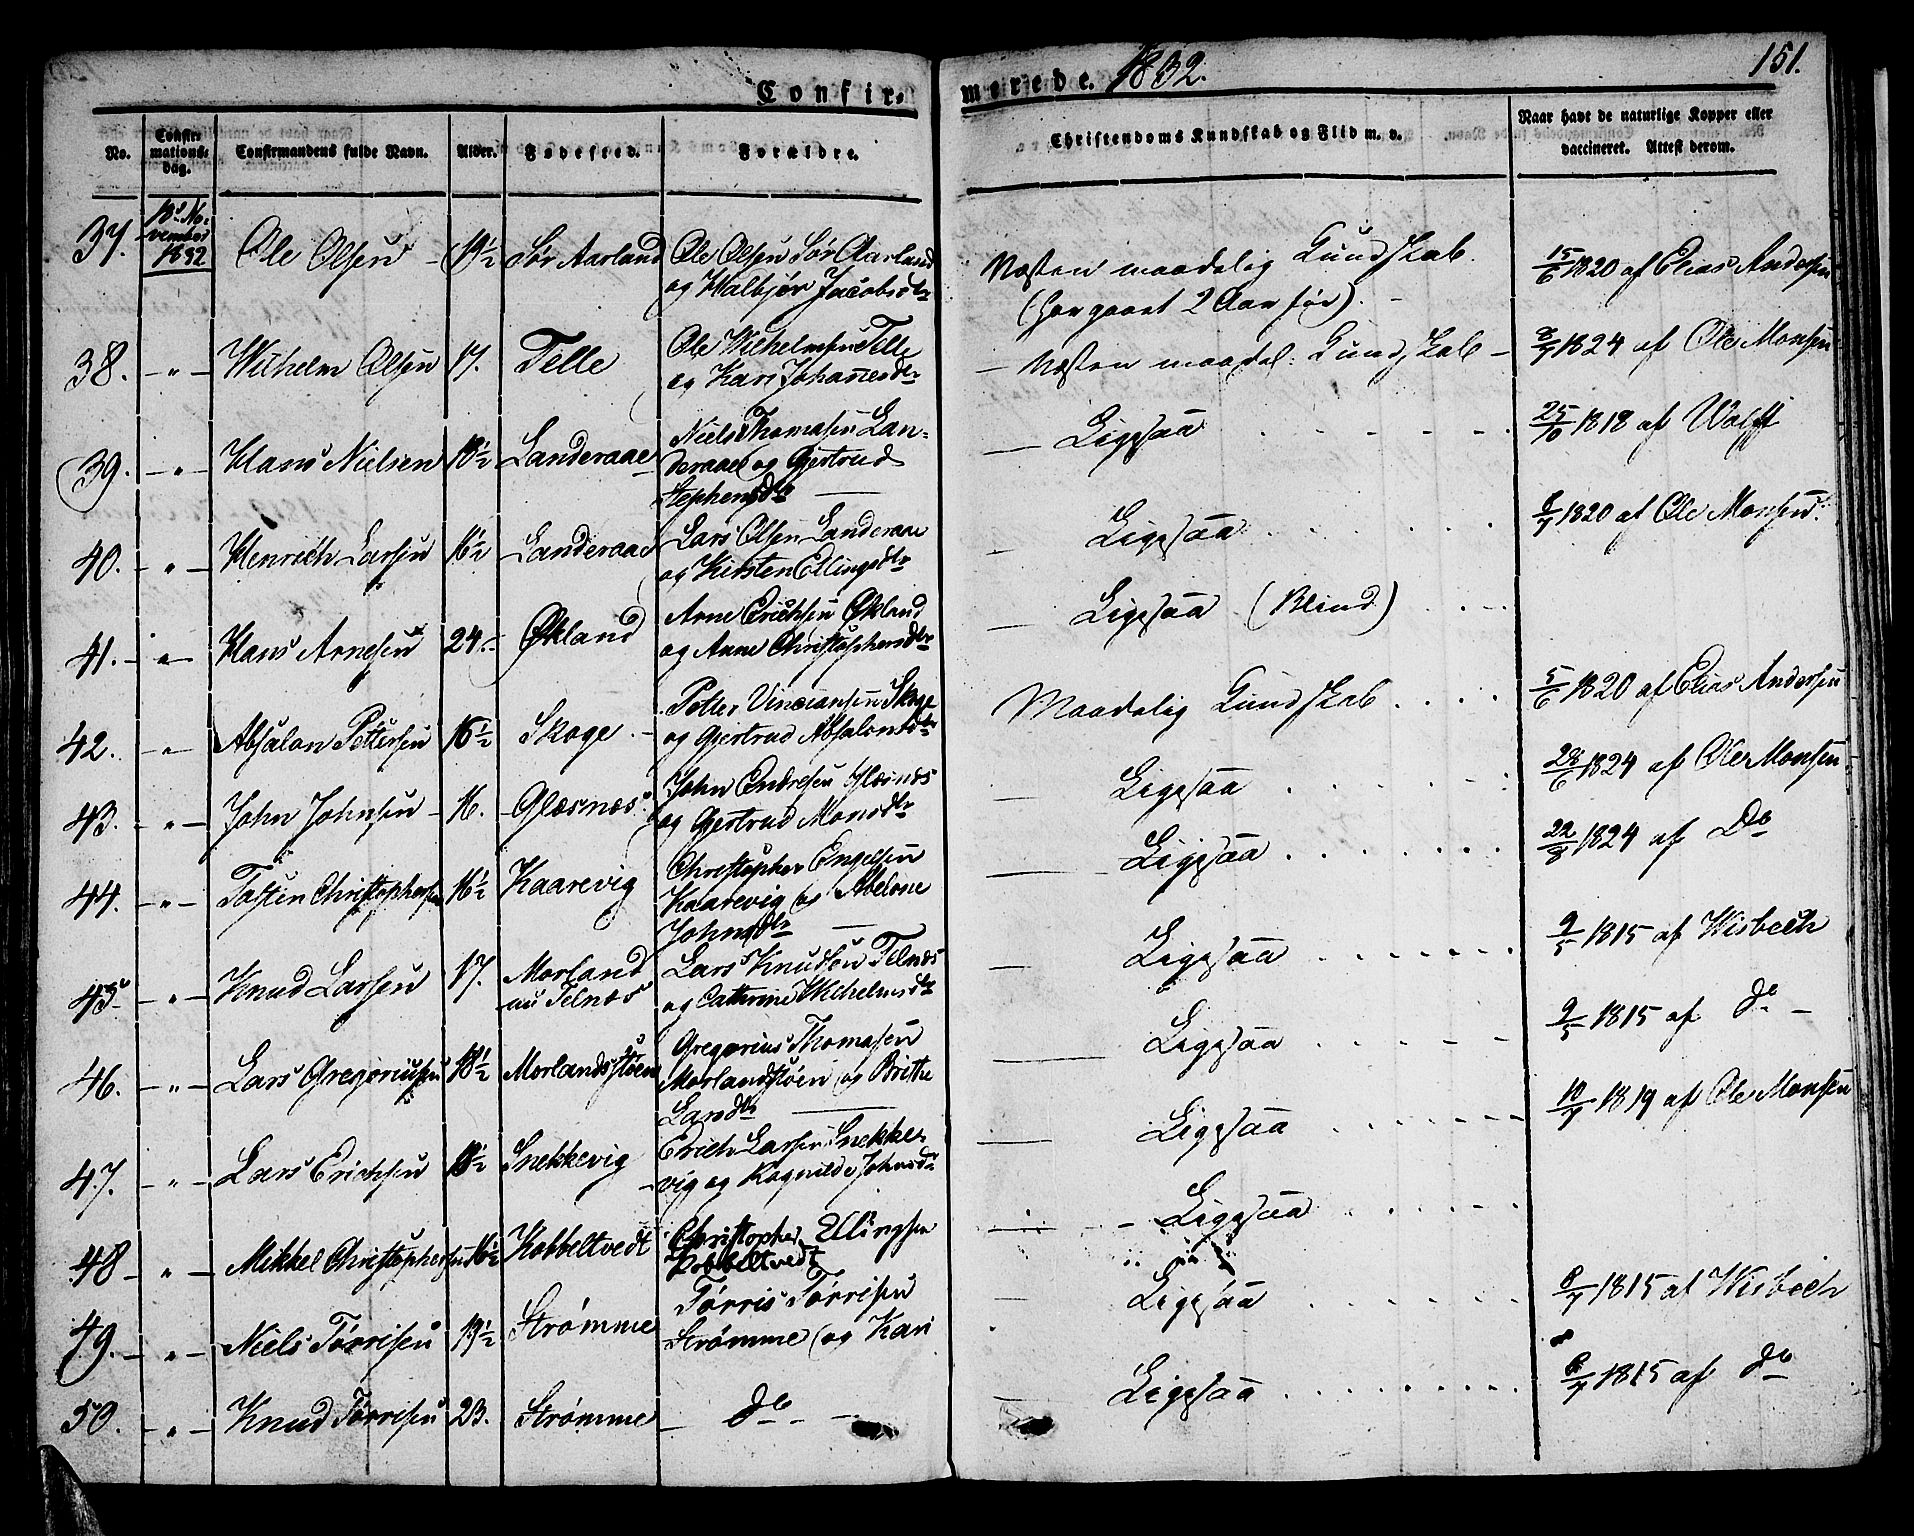 Confirmerede. 1832.
151.
No.
Confirmationsdag.
Confirmandens fulde Navn.
Alder.
Fødested.
Forældre.
Christendoms Kundskab og Flid m. v.
Naar havt de naturlige Kopper eller
vaccineret. Attest derom.
18de November 1832
37. Ole Olsen 19½ Sør Aarland Ole Olsen Sør Aarland
og Malbjør Jacobsdtr
Næsten maadelig Kundskab.
(har gaaet 2 Aar før). 15/6 1820 af Elias Andersen
38. – " – Wilhelm Olsen 17. Telle Ole Wilhelmsen Telle
og Kari Johannesdtr
– Næsten maadel: Kundskab – 8/7 1824 af Ole Monsen
39. – " – Hans Nielsen 18½ Landeraae Niels Thomasen Lan-
deraae og Gjertrud
Stephensdtr
– Ligesaa 25/10 1818 af Wolff
40. – " – Henrich Larsen 16½ Landeraae Lars Olsen Landeraae
og Kirsten Ellingsdtr
– Ligesaa 8/7 1820 af Ole Monsen.
41. – " – Hans Arnesen 24. Økland Arne Erichsen Økland
og Anne Christophersdtr
– Ligesaa (Blind)
42. – " – Absalon Pettersen 16½ Skoge Petter Vincentsen Skoge
og Gjertrud Absalonsdtr
Maadelig Kundskab 5/6 1820 af Elias Andersen
43. – " – John Johnsen 16. Glæsnæs John Endresen Glæsnæs
og Gjertrud Monsdtr
– Ligesaa 28/6 1824 af Ole Monsen
44. – " – Tosten Christophersen 16½ Kaarevig Christopher Engelsen
Kaarevig og Abelone
Johnsdtr
– Ligesaa 22/8 1824 af Do
45. – " – Knud Larsen 17. Morland
nu Telnæs Lars Knudsen Telnæs
og Cathrine Wilhelmsdtr
– Ligesaa 9/5 1815 af Wisbech
46. – " – Lars Gregoriusen 18½ Morlandsstøen Gregorius Thomasen
Morlandstøen og Brithe
Larsdtr
– Ligesaa 9/5 1815 af do –
47. – " – Lars Erichsen 18½ Snekkevig Erich Larsen Snekke-
vig og Ragnilde Johnsdtr
– Ligesaa 10/7 1819 af Ole Monsen
48 – " – Mikkel Christophersen 16½ Kobbeltvedt Christopher Ellingsen
Kobbeltvedt
– Ligesaa
49. – " – Niels Tørrisen 19½ Strømme Tørris Tørrisen
Strømme og Kari
Ligesaa 8/7 1815 af Wisbech
50. – " – Knud Tørrisen 23. Strømme – do –
– Ligesaa 8/7 1815 af do